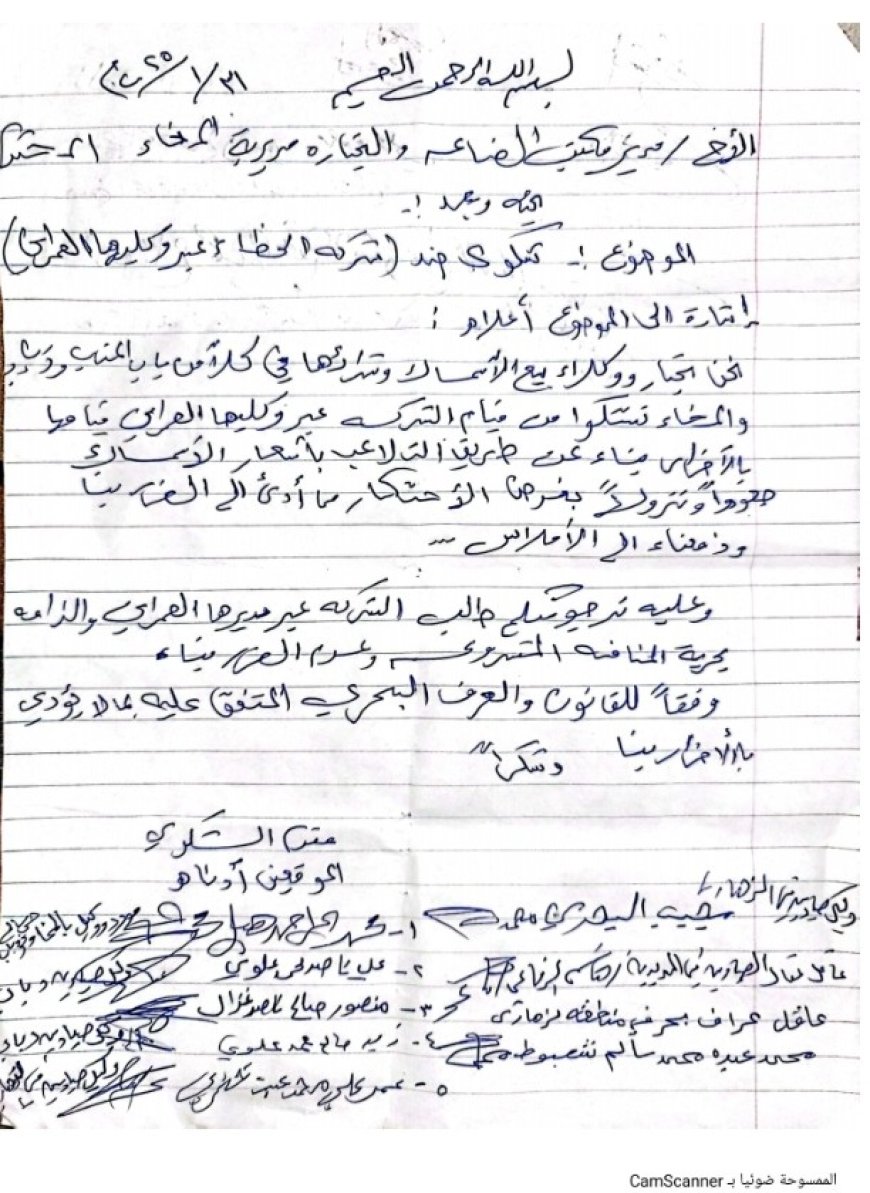 بسم الله الرحمن الرحيم
٣١/١/٢٠٢٥م
الأخ/ مدير مكتب الصناعه والتجاره مديرية المخاء المحترم
تحيه وبعد :ـ
الموضوع :ـ شكوى ضد (شركه الحظاء عبر وكليها العمرابي)
إشارة الى الموضوع أعلاه :
نحن تجار ووكلاء بيع الأسماك وشرائها في كلاً من باب المندب وذباب
والمخاء نشتكوا من قيام الشركه عبر وكليها العرابي قيامها
بالأضرار بناء عن طريق التلاعب بأسعار الأسماك
صعوداً ونزولاً بغرض الأحتكار مما أدى الى الضرر بنا
ودفعناء الى الأفلاس ...
وعليه نرجو تكليم طالب الشركه عبر مديرها العمرابي والزامه
بحرية المنافسه المشروعه وعدم الضرر بناء
وفقاً للقانون والعرف البحري المتفق عليه بما لا يؤدي
بالأضرار بنا وشكراً
مقدمين الشكوى
الموقعين أدناه
وكيل صيادين الزهاري
نجيب البحري محمد
١- محمد احمد هبل
عاقل الصيادين في المديرية
٢- علي ناصر علوي
عاقل عراف بحري منطقه الزهاري
٣- منصور صالح ناصر غزال
محمد عبده محمد سالم
٤- زيد صالح محمد علوي
٥- عمر علي
الممسوحة ضوئيا بـ CamScanner